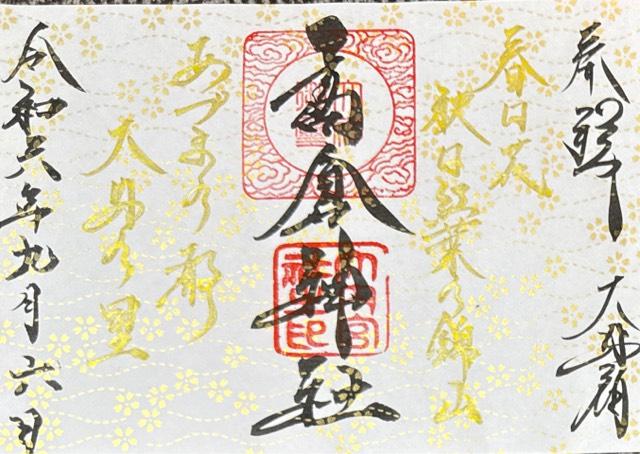 奉拝 大内宿
春は花
秋は紅葉の錦山
高倉神社
あづまの都
大内の里
令和六年九月六日